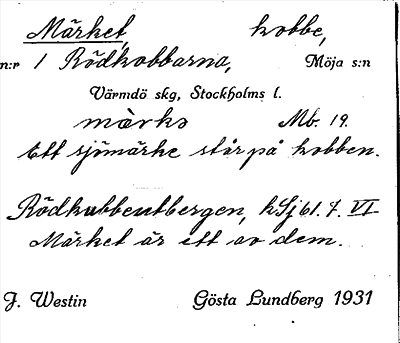 Märket, kobbe,
n:r 1 Rödkobbarna, Möja s:n
Värmdö skg, Stockholms l.
märkə Mb. 19.
Ett sjömärke står på kobben.
Rödkubbeutbergen, kSj 61. 7. VI
Märket är ett av dem.
J. Westin Gösta Lundberg 1931